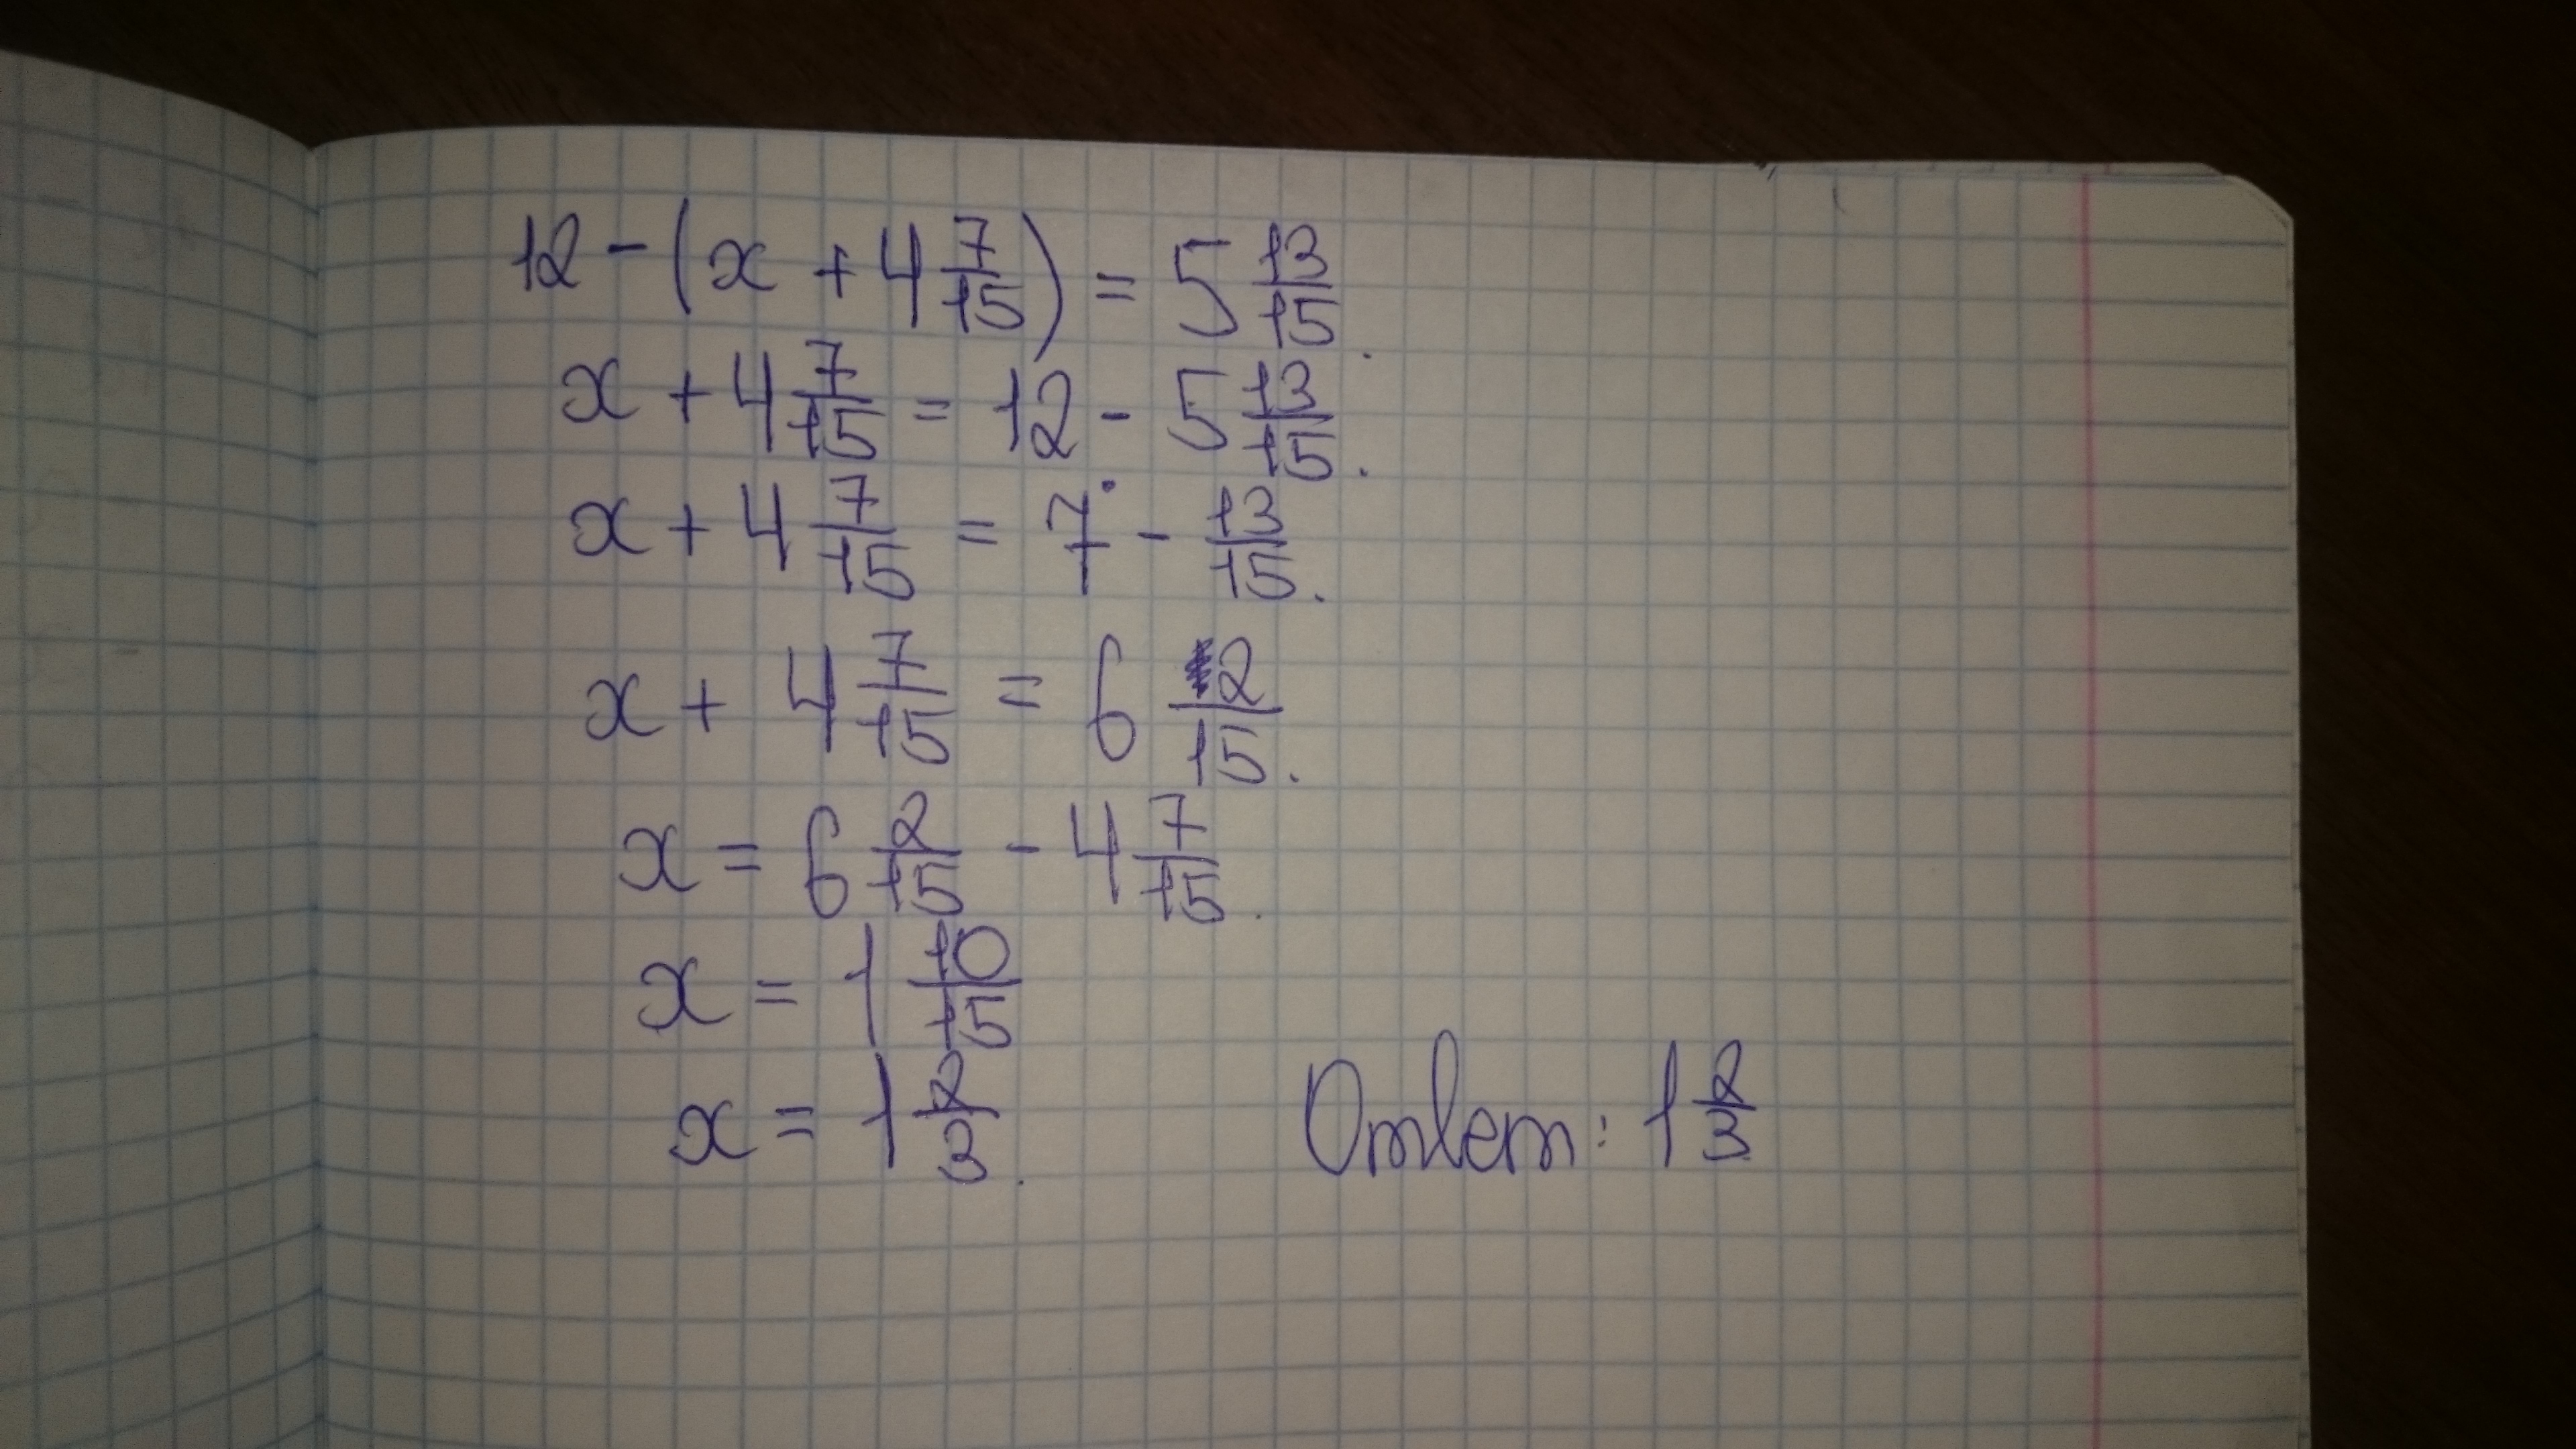 12 - (x + 4 7/15) = 5 13/15.
x + 4 7/15 = 12 - 5 13/15.
x + 4 7/15 = 7 - 13/15.
x + 4 7/15 = 6 2/15.
x = 6 2/15 - 4 7/15.
x = 1 10/15
x = 1 2/3.
Ответ: 1 2/3